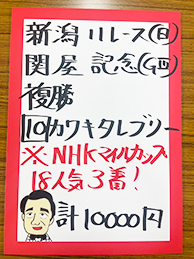 新潟11レース(日)
関屋記念(GⅢ)
複勝
10カワキタレブリー
※NHKマイルカップ
18人気3番!
計10000円